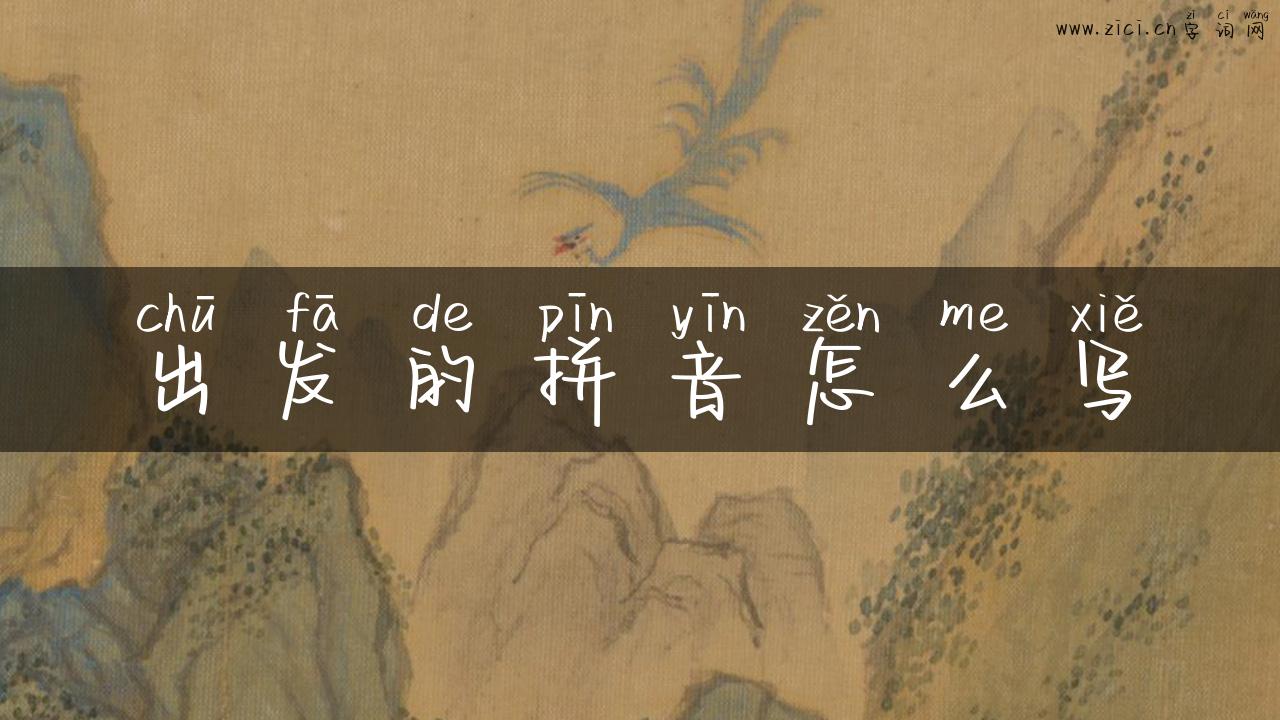 zì cí wǎng
www.zici.cn字词网
chū fā de pīn yīn zěn me xiě
出发的拼音怎么写